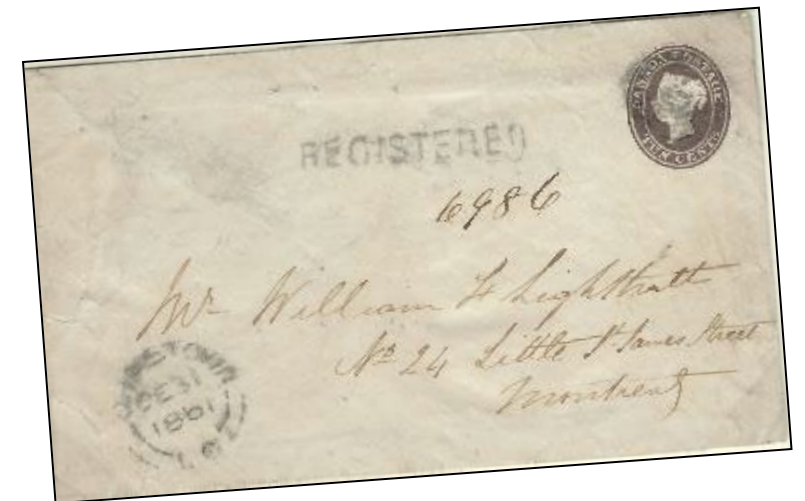 CANADA POSTAGE
TEN CENTS
REGISTERED
6986
Mr William H Lighthall
No 24 Little St James Street
Montreal
DE 31
1861